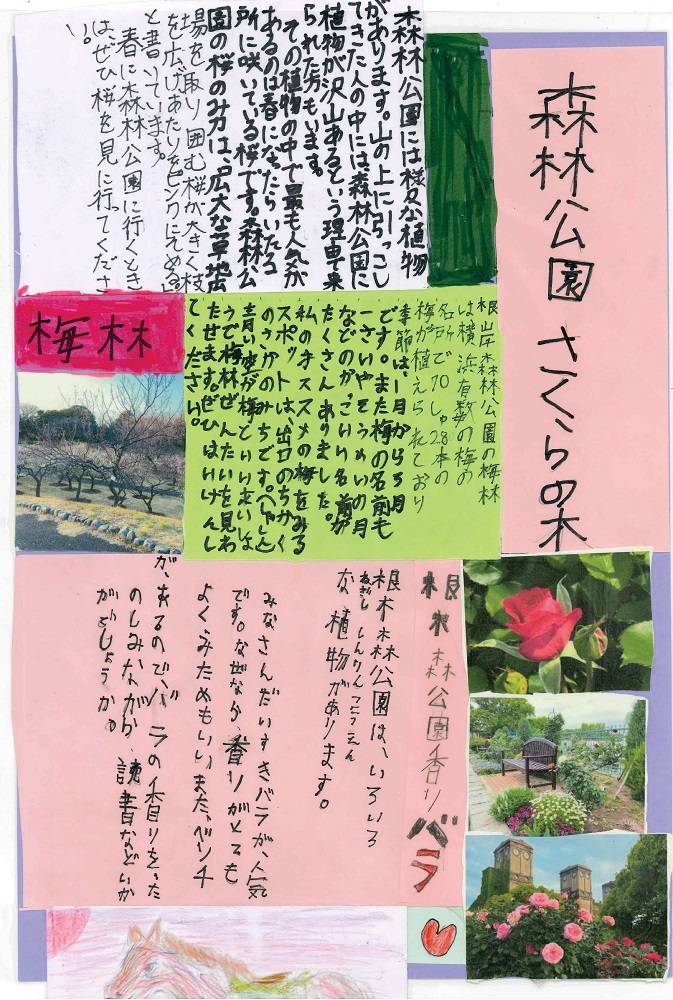 森林公園 さくらの木
森林公園には様々な植物
があります。山の上に引っこし
てきた人の中には森林公園に
植物が沢山あるという理由で来
られた方もいます。
その植物の中で最も人気が
あるのは春になったらいたる
所に咲いている桜です。森林公
園の桜のみ力は、広大な草地広
場を取り囲む桜が大きく枝
を広げあたりをピンクにそめる
と書いています。
春に森林公園に行くとき
は、ぜひ桜を見に行ってくださ
い。
梅林
根岸森林公園の梅林
は横浜有数の梅の
名所で70しゅ
梅が植えられており
季節は、1月から3月
です。また梅の名前も
一さいやそうめいの月
などのかっこいい名前が
たくさんありました。
私のオススメの梅をみる
スポットは、出口のちかく
のさかのみちです。
青い空が梅と
うで梅林ぜんたいを見わ
たせます。ぜひはいけんし
てください。
森林公園香りバラ
森林公園は、いろいろ
ねぎし しんりんこうえん
な植物があります。
みなさんだいすきバラが、人気
です。なぜなら、香りがとても
よくみためもいい、また、ベンチ
が、あるので、バラの香りをった
のしみながら、読書などいか
がでしょうか。